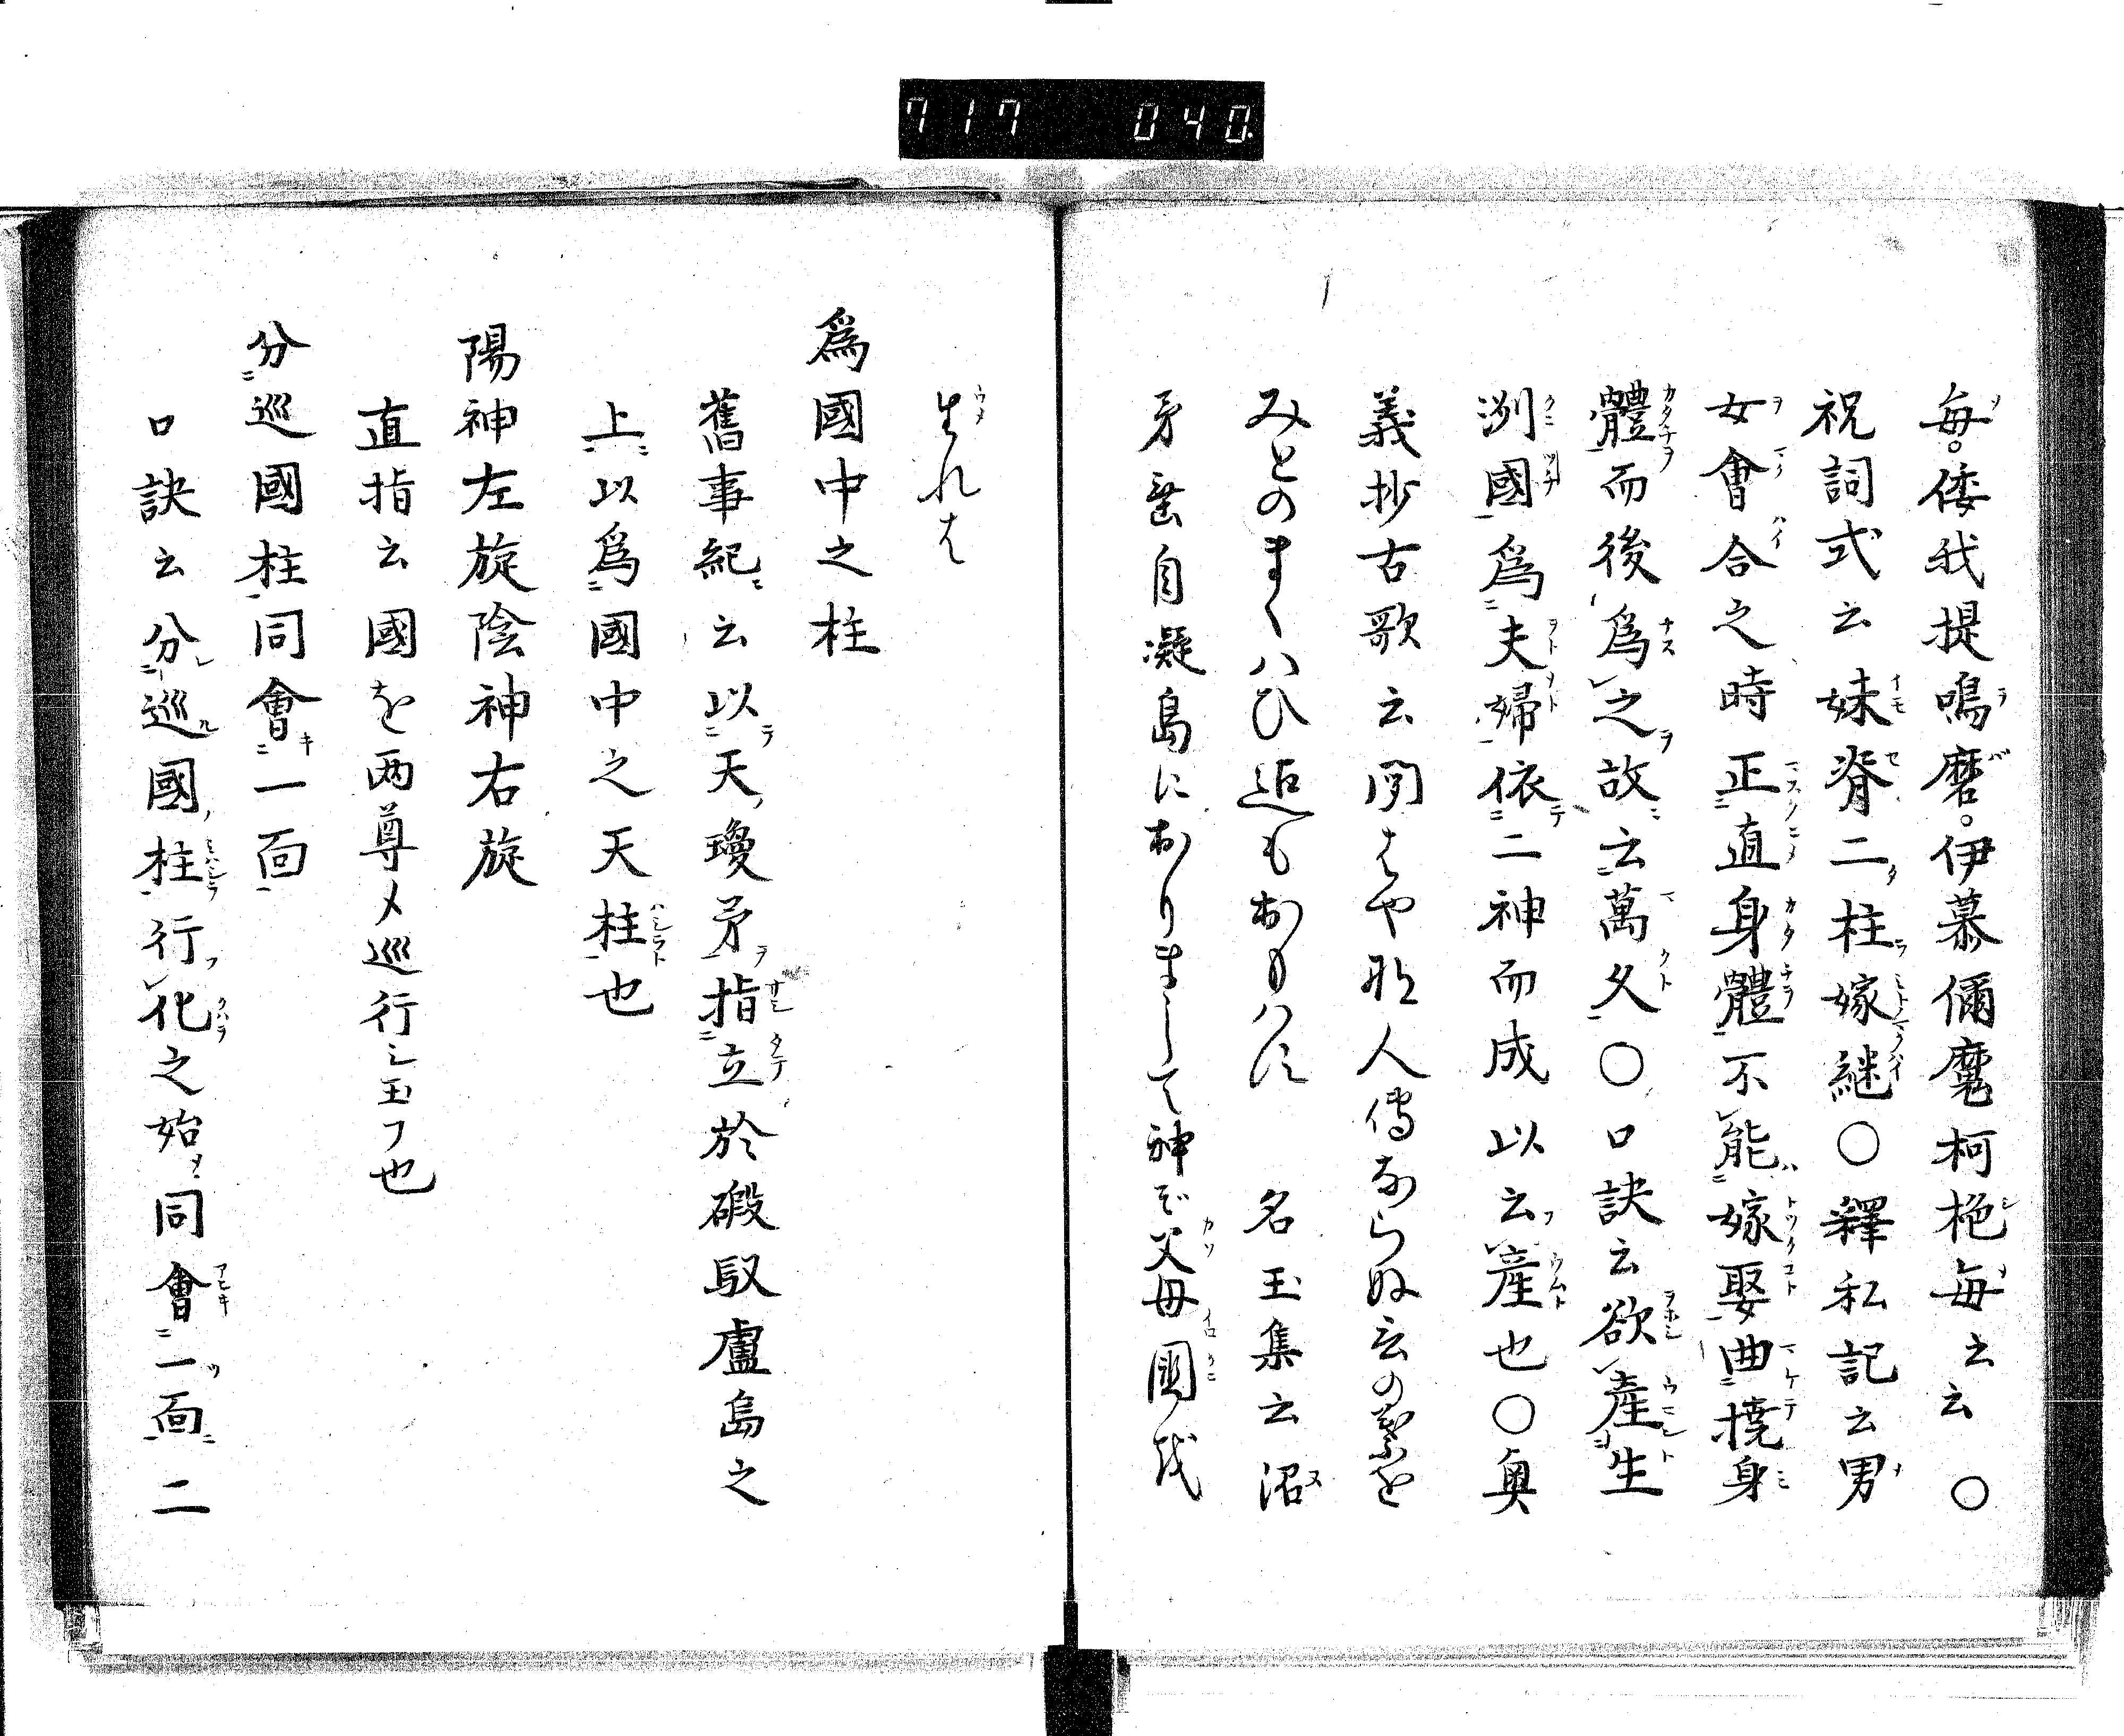 717 040.
毎。倭我提鳴磨。伊慕儞魔柯梔毎云云〇
祝詞式云妹脊二柱嫁継〇釋私記云男
女會合之時正直身體不能嫁娶曲撓身
體而後爲之故云萬久〇口訣云欲産生
洌國爲夫婦依二神而成以云産也〇奥
義抄古歌云聞はや那人傳ならぬ言の葉を
みとのまくハひ迄もおもハす 名玉集云沼
矛垂自凝島におりまして神ぞ父母國を
生れは
爲國中之柱
舊事紀云以天瓊矛指立於磤馭盧島之
上以爲國中之天柱也
陽神左旋陰神右旋
直指云國を两尊〆巡行シ玉フ也
分巡國柱同會一面
口訣云分巡國柱行化之始同會一面二